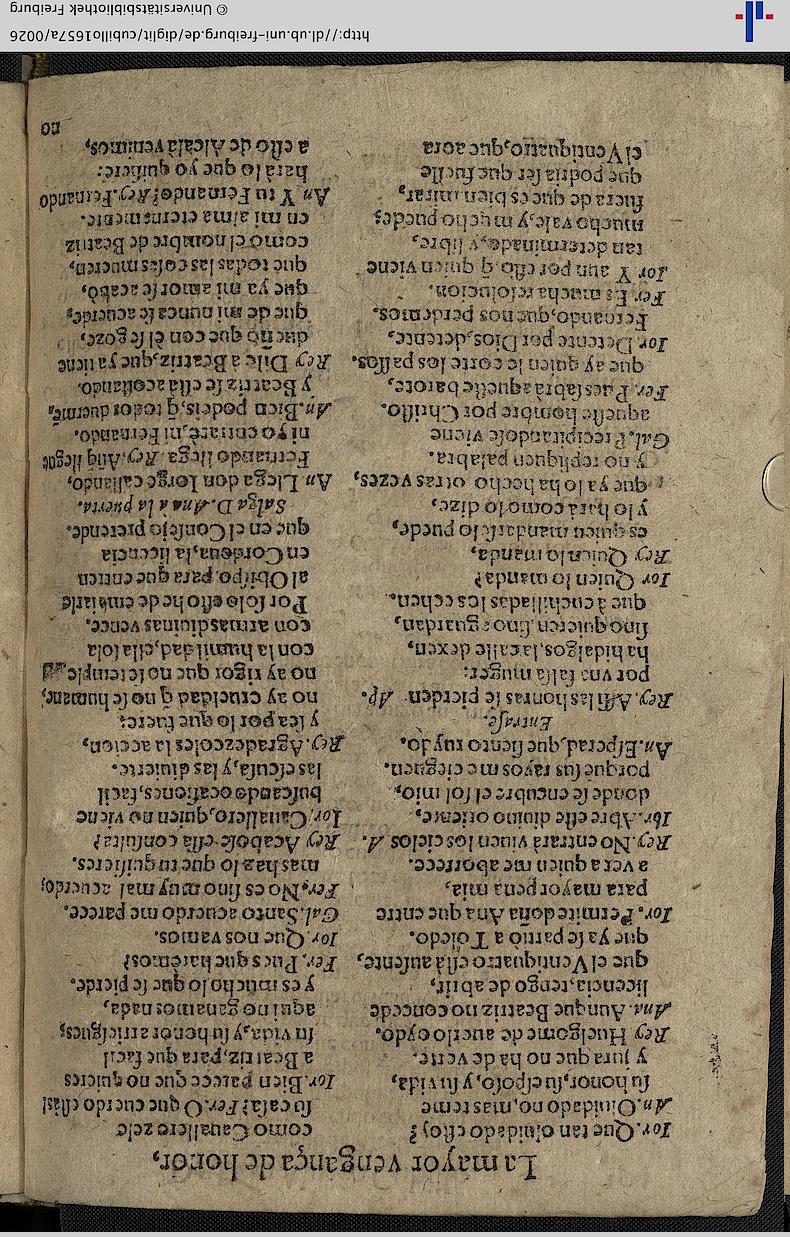 La mayor vengança de honor,
Ior. Que tan oluidado estoy?
An. Oluidado no, mas teme
su honor, su esposo, y su vida,
y jura que no ha de verte.
Rey Huelgome de auerlo oydo.
Ana. Aunque Beatriz no concede
licencia, tengo de abrir,
que el Ventiquatro està ausente,
que ya se partio a Toledo.
Ior. Permite doña Ana que entre
para mayor pena mia,
a ver a quien me aborrece.
Rey. No entrarà viuen los cielos A.
Ior. Abre esse diuino oriente,
donde se encubre el sol mio,
porque sus rayos me cieguen.
An. Espera, que siento ruydo.
Entrase.
Rey. Assi las honras se pierden Ap.
por vna falsa muger:
ha hidalgos, la calle dexen,
sino quieren, sino aguardan,
que à cuchilladas los echen.
Ior Quien lo manda?
Rey Quien lo manda,
es quien mandarselo puede,
y lo hara como lo dize,
que ya lo ha hecho otras vezes,
y no repliquen palabra.
Gal. Precipitandose viene
aquesse hombre por Christo.
Fer. Pues sabrà aquesse barote,
que ay quien le corte los passos.
Ior. Detente por Dios, detente,
Fernando, que nos perdemos.
Fer. Es mucha resolucion.
Ior Y aun por esso q̃ quien viene
tan determinado, y libre,
mucho vale, y mucho puede,
fuera de que es bien mirar,
que podria ser que fuesse
el Ventiquatro, que aora
como Cauallero zele
su casa? Fer. O que cuerdo estàs!
Ior. Bien parece que no quieres
a Beatriz, para que facil
su vida, y su honor arriesgues;
aqui no ganamos nada,
y es mucho lo que se pierde.
Fer. Pues que harèmos?
Ior. Que nos vamos.
Gal. Santo acuerdo me parece.
Fer. No es sino muy mal acuerdo;
mas haz lo que tu quisieres.
Rey Acabose essa consulta?
Ior. Cauallero, quien no viene
buscando ocasiones, facil
las escusa, y las diuierte.
Rey. Agradezcoles la accion,
y sea por lo que fuere:
no ay crueldad q̃ no se humane,
no ay rigor que no se temple
con la humildad, ella sola
con armas diuinas vence.
Por solo esso he de embiarle
al Obispo, para que entren
en Cordoua, la licencia
que en el Consejo pretende.
Salga D. Ana a la puerta.
An Llega don Iorge callando,
Fernando llega. Rey. Aũq llegue
ni yo entrarè, ni Fernando.
An. Bien podeis, q̃ todos duermẽ,
y Beatriz se està acostando.
Rey Dile a Beatriz, que ya tiene
dueño que con èl se goze,
que de mi nunca se acuerde,
que ya mi amor se acabò,
que todas las cosas mueren,
como el nombre de Beatriz
en mi alma eternamente.
An Y tu Fernando? Rey. Fernando
harà lo que yo quisiere:
a esso de Alcalà venimos,
no
http://dl.ub.uni-freiburg.de/diglit/cubillo1657a/0026
© Universitätsbibliothek Freiburg